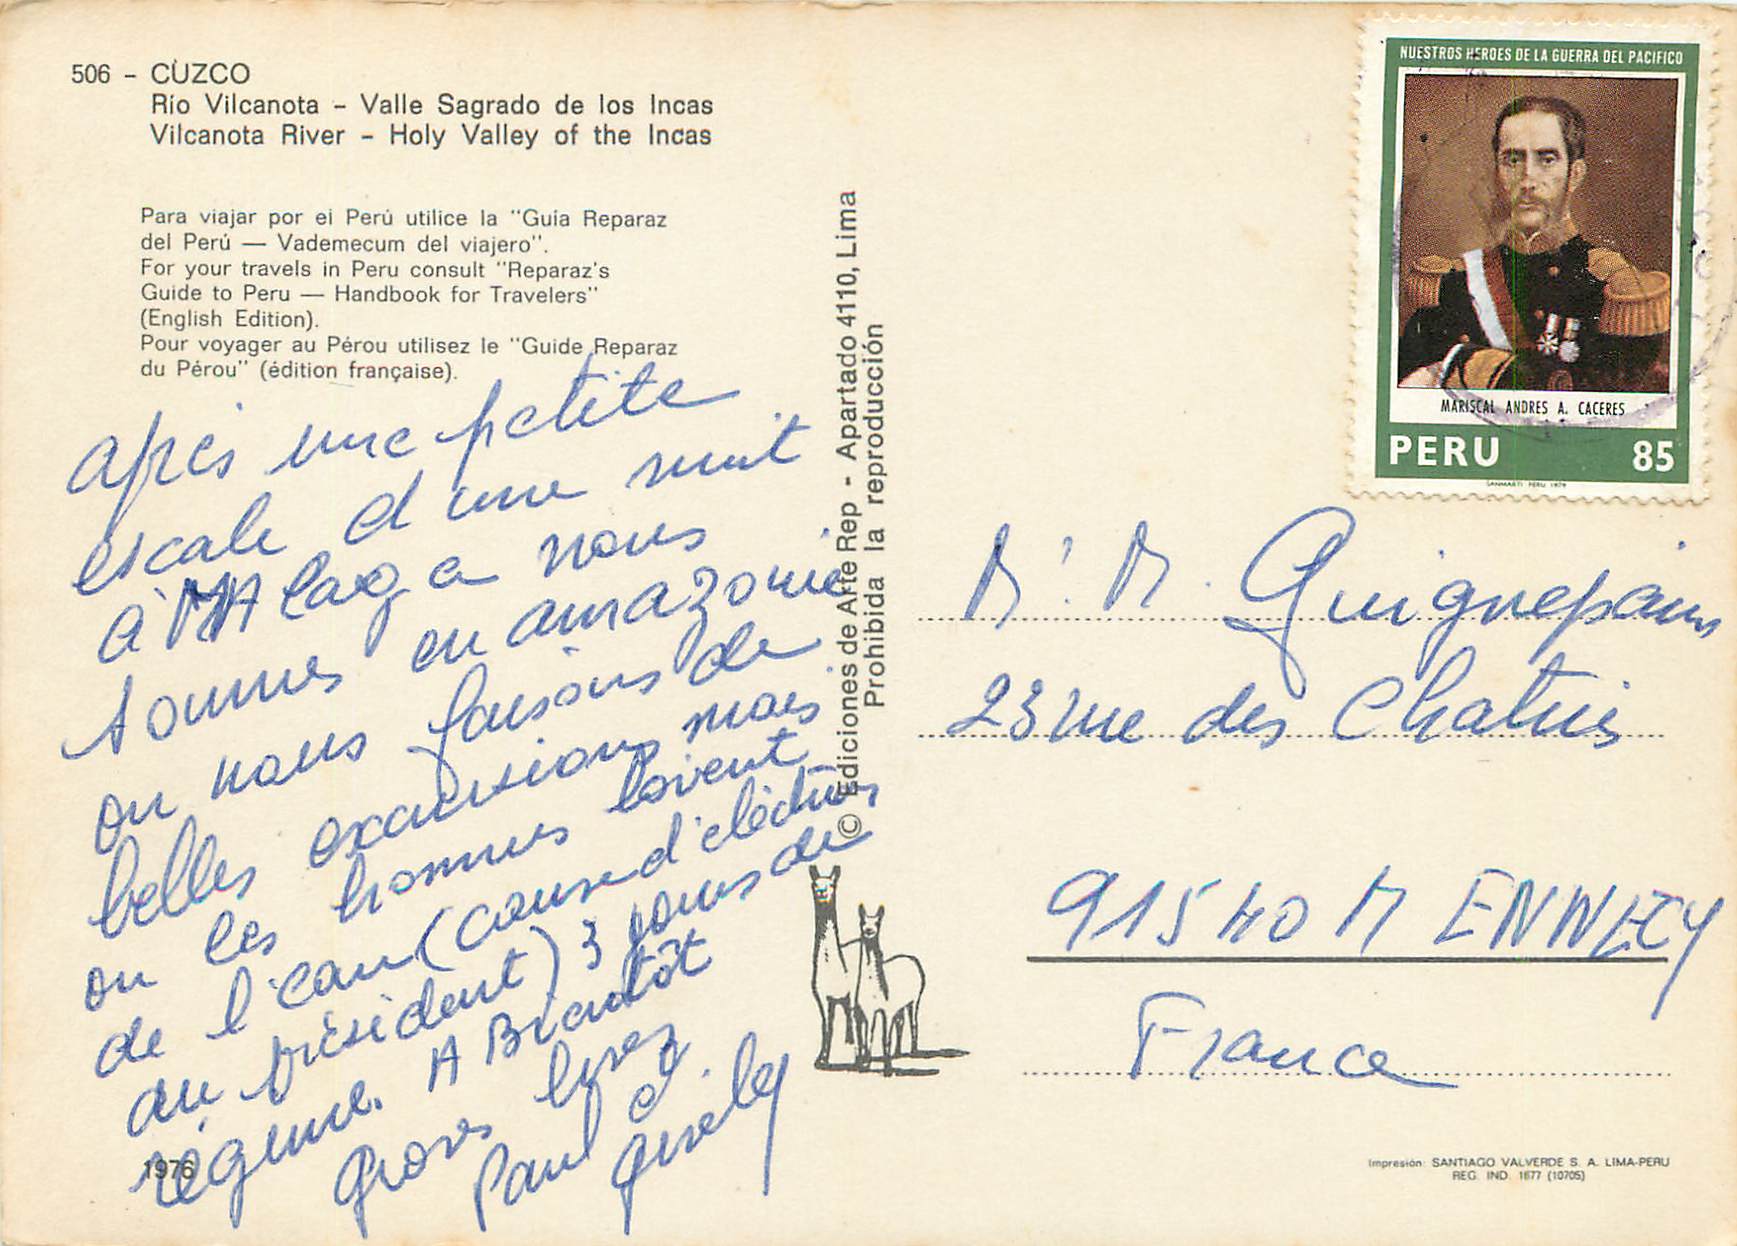 506 - CÙZCO
Río Vilcanota - Valle Sagrado de los Incas
Vilcanota River - Holy Valley of the Incas
Para viajar por el Perú utilice la "Guía Reparaz
del Perú — Vademecum del viajero".
For your travels in Peru consult "Reparaz's
Guide to Peru — Handbook for Travelers"
(English Edition).
Pour voyager au Pérou utilisez le "Guide Reparaz
du Pérou" (édition française).
après une petite
escale d'une nuit
à MAlaga nous
sommes en amazonie
ou nous faisons de
belles excursions mais
ou les hommes boivent
de l'eau (cause d'élection
au président) 3 jours de
régime. A Bientôt
Gros bises
Paul et
1976
© Ediciones de Arte Rep - Apartado 4110, Lima
Prohibida la reproducción
NUESTROS HEROES DE LA GUERRA DEL PACIFICO
MARISCAL ANDRES A. CACERES
PERU 85
SANMARTI PERU 1979
Mr. M. Guignepain
23 rue des Chatries
91540 MENNECY
France
Impresión: SANTIAGO VALVERDE S. A. LIMA-PERU
REG. IND. 1677 (10705)